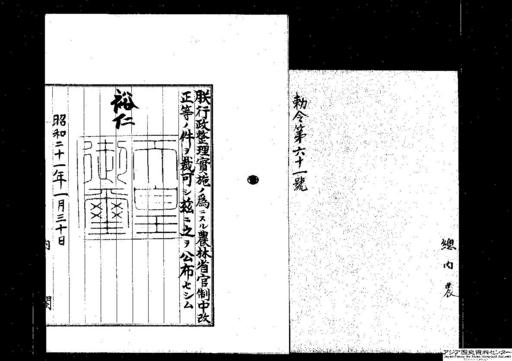 勅令第六十一號
總
內
農
朕行政整理實施ノ爲ニスル農林省官制中改
正等ノ件ヲ裁可シ茲ニ之ヲ公布セシム
裕仁
天皇
御璽
昭和二十一年一月三十日
內閣
アジア歴史資料センター